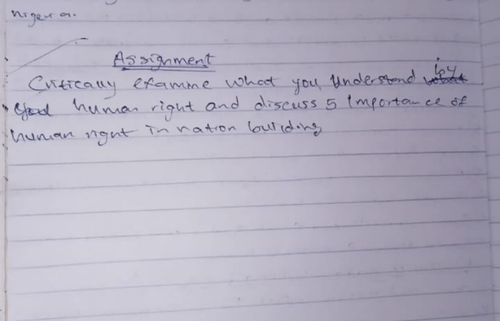 Nigeria.
Assignment
Critically examine what you understand by
human right and discuss 5 importance of
human right in nation building